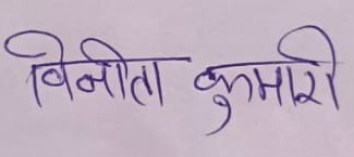 विनीता कुमारी